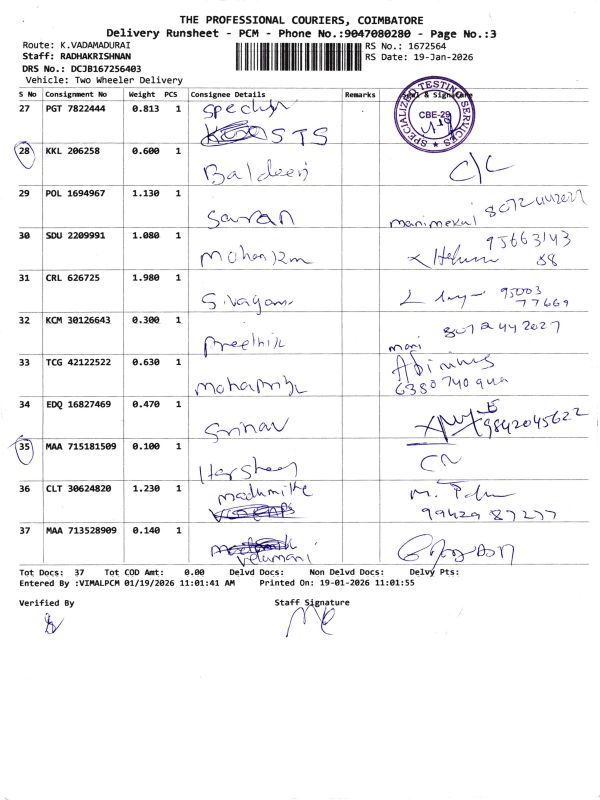 THE PROFESSIONAL COURIERS, COIMBATORE
Delivery Runsheet - PCM - Phone No.:9047080280 - Page No.:3
Route: K.VADAMADURAI
RS No.: 1672564
Staff: RADHAKRISHNAN
RS Date: 19-Jan-2026
DRS No.: DCJB167256403
Vehicle: Two Wheeler Delivery
S No Consignment No Weight PCS Consignee Details Remarks & Signature
SPECIALIZED TESTING SERVICES
CBE-29
27 PGT 7822444 0.813 1
STS
28 KKL 206258 0.600 1 Baldeep C/C
29 POL 1694967 1.130 1 Saravan manimekal 8072442027
30 SDU 2209991 1.080 1 95663143
88
31 CRL 626725 1.980 1 Sivagami 95003
77669
32 KCM 30126643 0.300 1 Preethik 8072442027
mani
33 TCG 42122522 0.630 1
34 EDQ 16827469 0.470 1 Srinav 9842045622
35 MAA 715181509 0.100 1 CN
36 CLT 30624820 1.230 1 madumithe
99429 87277
37 MAA 713528909 0.140 1
velumani
Tot Docs: 37 Tot COD Amt: 0.00 Delvd Docs: Non Delvd Docs: Delvy Pts:
Entered By :VIMALPCM 01/19/2026 11:01:41 AM Printed On: 19-01-2026 11:01:55
Verified By Staff Signature